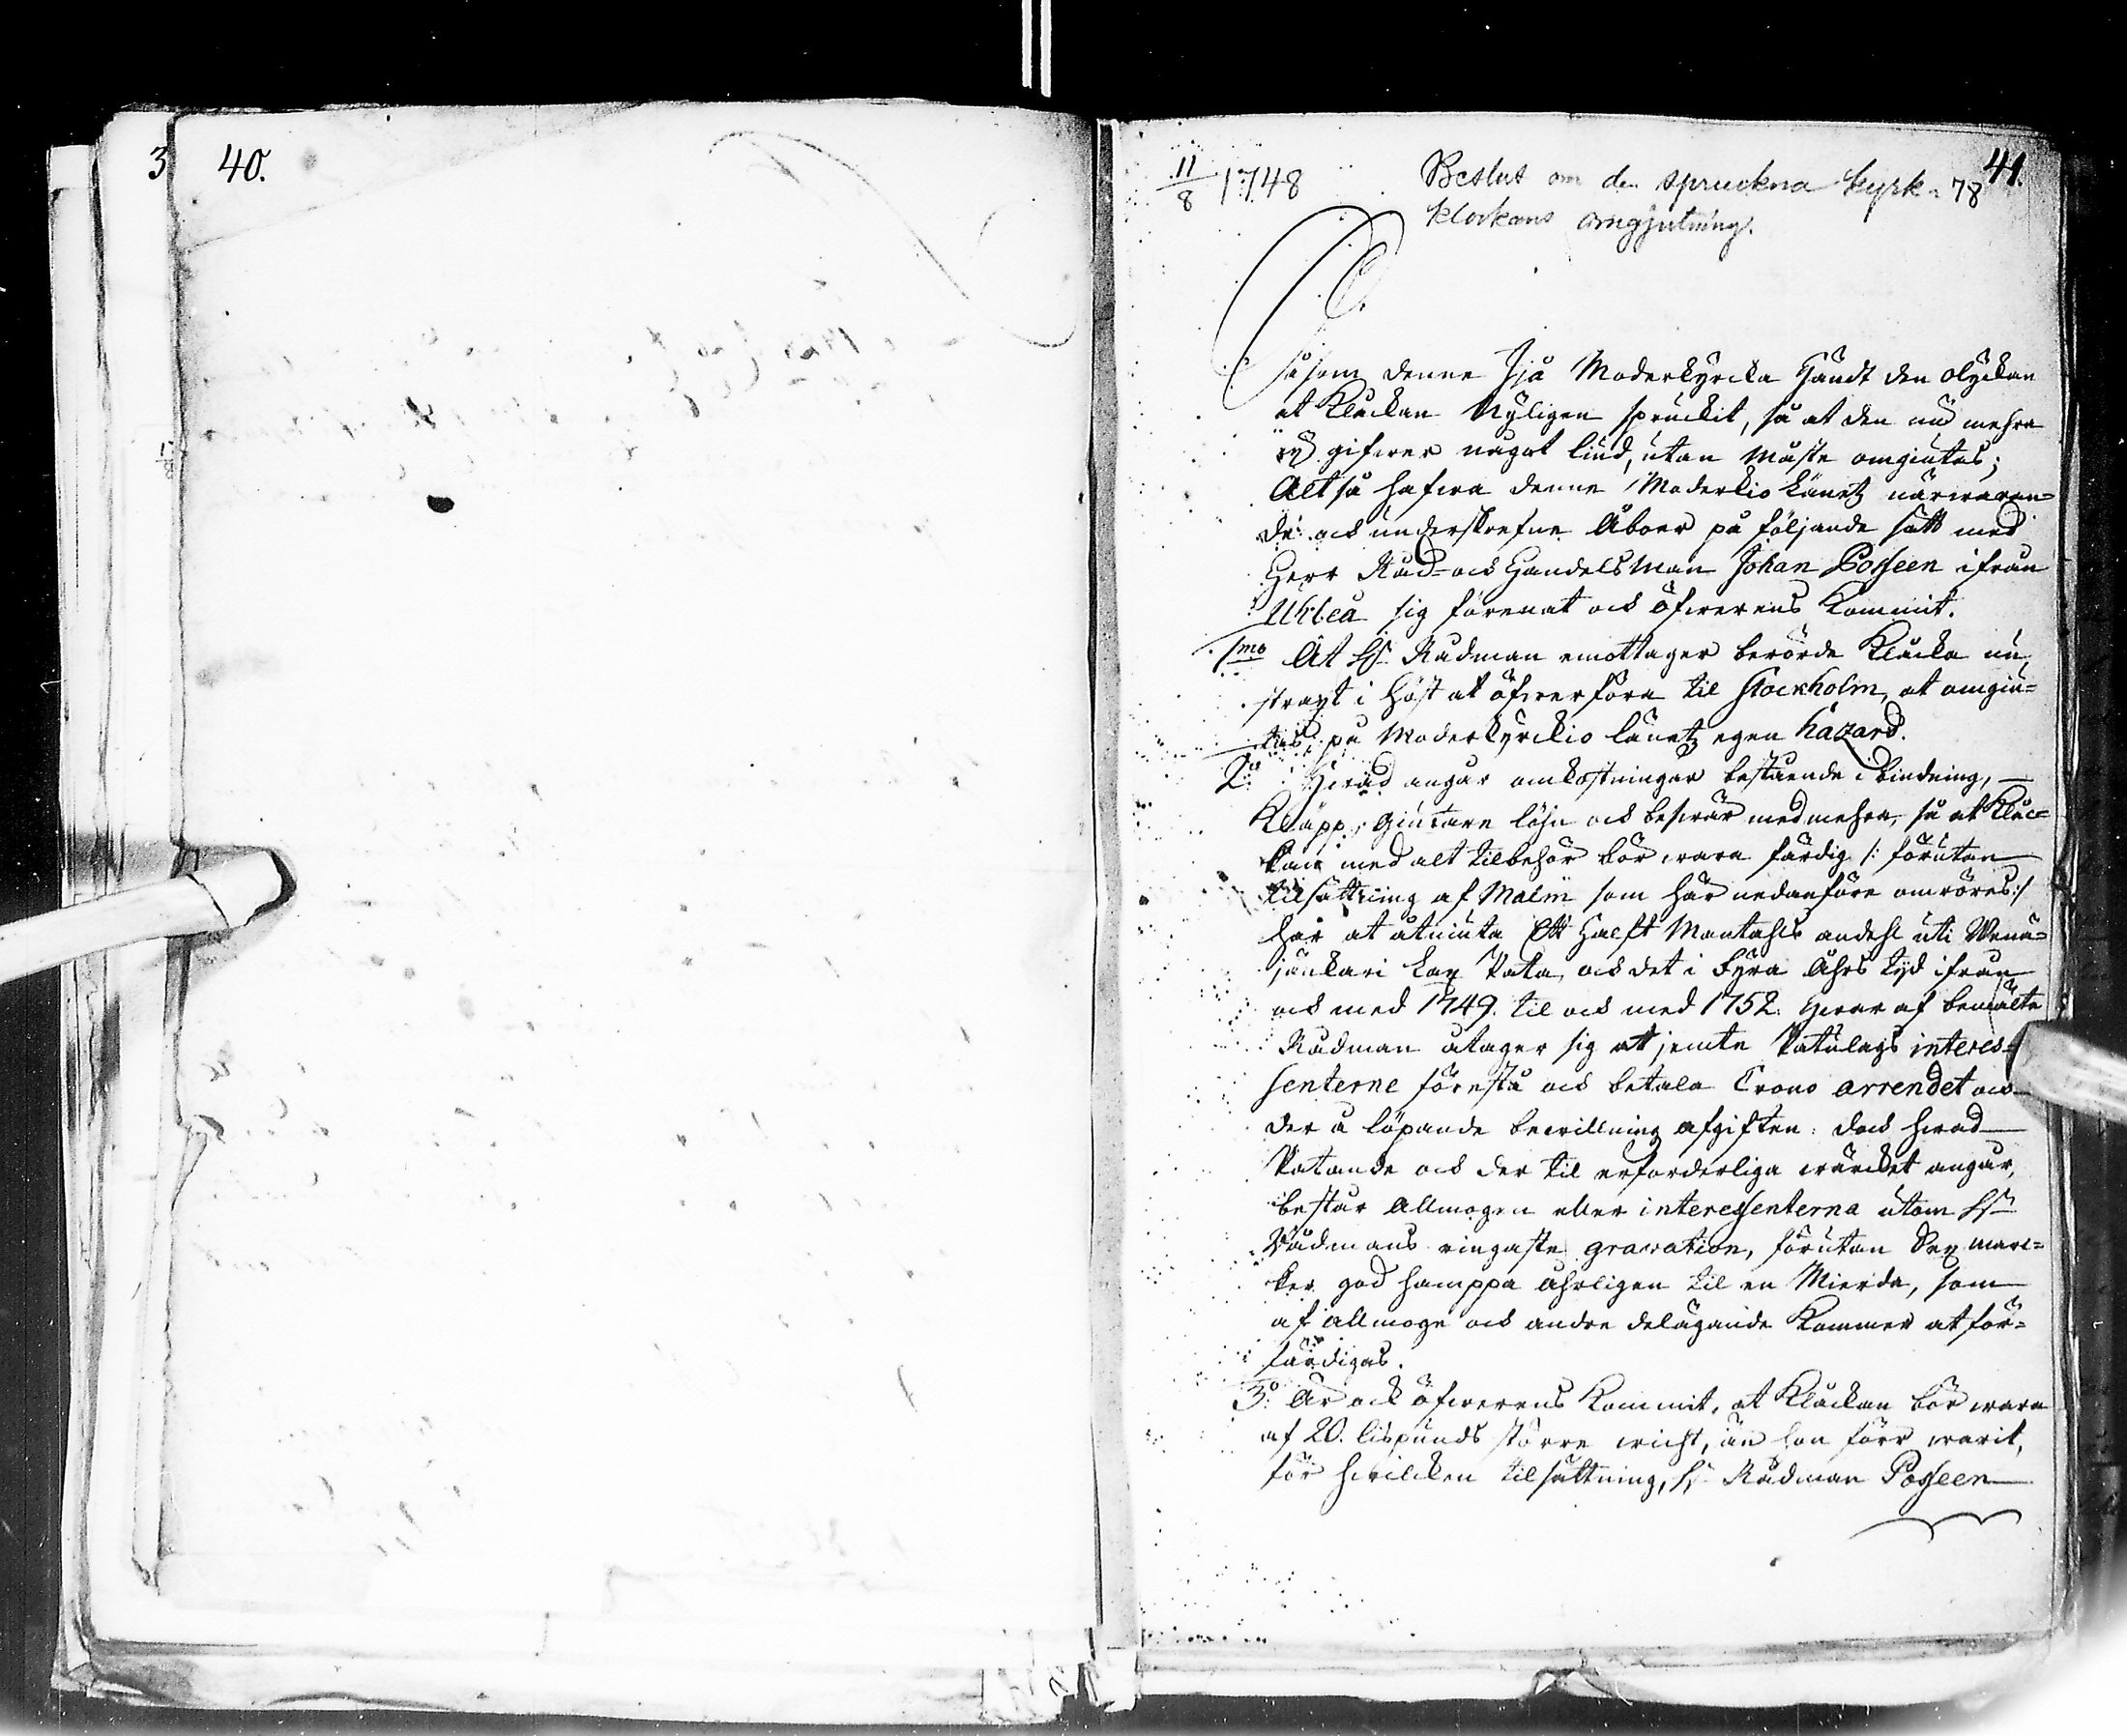 3
40.
11/8 1748
41.
Beslut om den spruckna kyrk- 78
klockans omgjutning.
Såsom denne Ijå Moderkyrcka händt den olyckan
at Klåckan Nyligen spruckit, så at den nu mehra
ey gifwer något liud, utan måste omgiutas;
Altså hafwa denne Moderkio Länetz närwaran=
de och underskrefne Åboer på följande sätt med
Herr Råd- och Handelsman Johan Posseen ifrån
Uhleå sig förenat och öfwerens kommit.
1mo At Hr Rådman emottager berörde Klåcka nu
straxt i höst at öfwerföra til Stockholm, at omgiu=
tas på Moderkyrckio länetz egen hazard.
2o Hwad angår omkostningar bestående i bindning,
Kläpp, Giutare löhn och beswär med mehra, så at Klåc=
kan med alt tilbehör bör wara färdig /: förutan
tilsättning af Malm som här nedanföre omröres :/
har at åtniuta Ett Halft Mantahls andehl uti Menä=
jänkari Lax Pata, och det i Fyra åhrs tyd ifrån
och med 1749. til och med 1752. hwar af bemälte
Rådman åtager sig att jemte Patulags interes=
senterne förestå och betala Crono arrendet och
der å löpande bewillning afgiften: doch hwad
Patande och der til erforderliga wärcket angår,
består Allmogen eller interessenterna utom Hr
Rådmans ringaste gravation, förutan Sex marc=
ker god hamppa åhrligen til en Mierda, som
af allmoge och andre delägande kommer at för=
färdigas.
3o Är och öfwerens kommit, at Klåckan bör wara
af 20. lispunds större wicht, än hon förr warit,
för hwilcken tilsättning, Hr Rådman Posseen